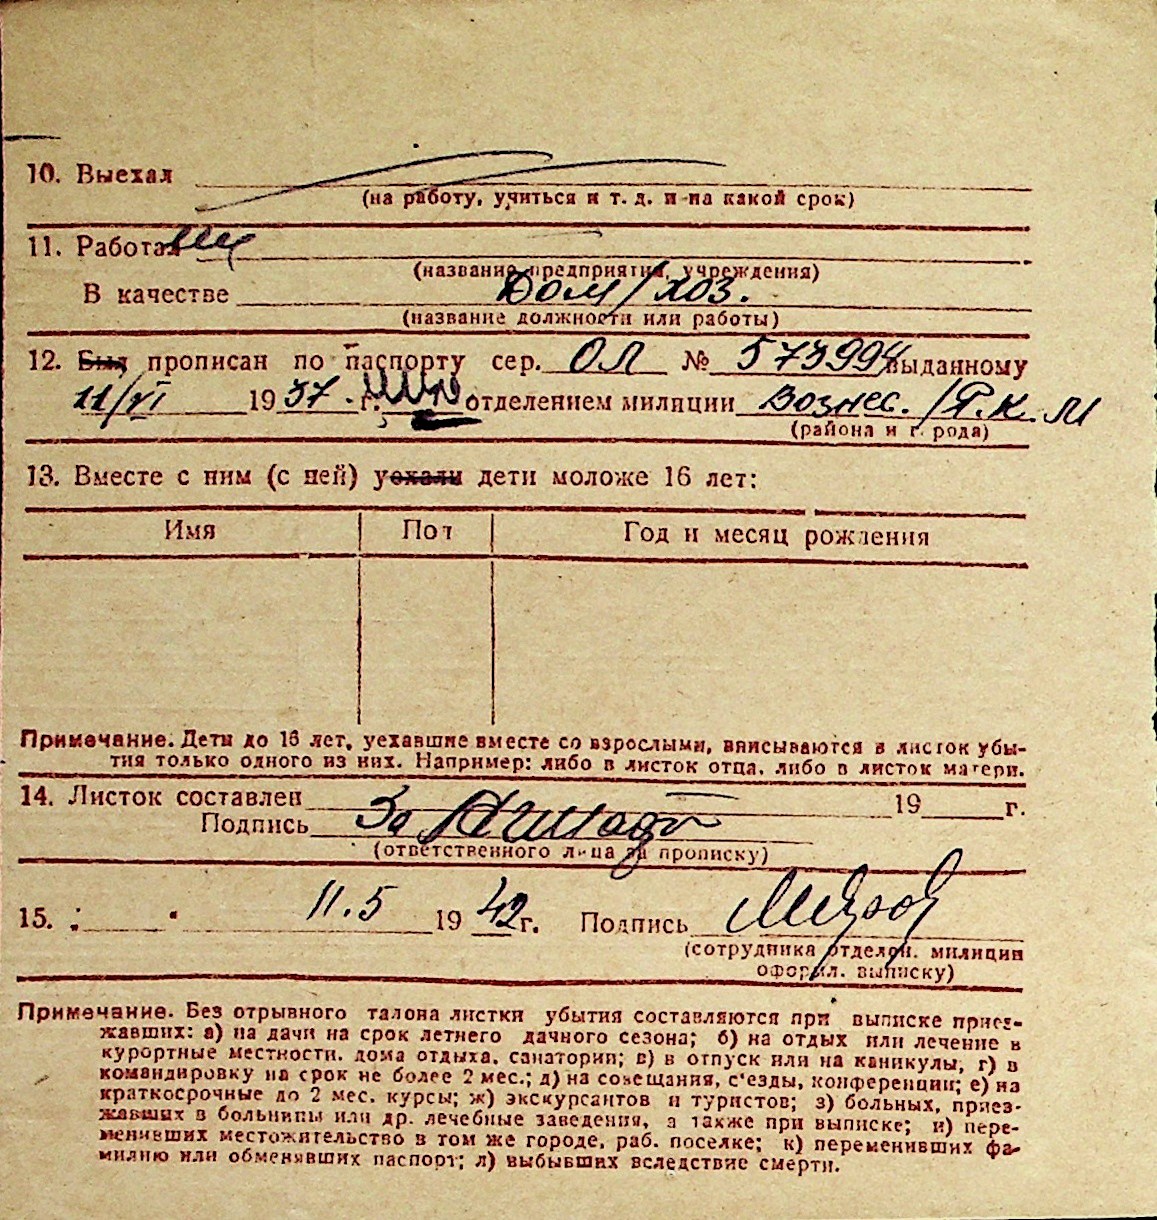 10. Выехал
(на работу, учиться и т. д. и на какой срок)
11. Работал
(название предприятия, учреждения)
В качестве Дом/хоз.
(название должности или работы)
12. Был прописан по паспорту сер. ОЛ № 573994 выданному
11/VI 1937 г. отделением милиции Вознес. /Р.К.М
(района и города)
13. Вместе с ним (с ней) уехали дети моложе 16 лет:
Имя Пол Год и месяц рождения
Примечание. Дети до 16 лет, уехавшие вместе со взрослыми, вписываются в листок убы-
тия только одного из них. Например: либо в листок отца, либо в листок матери.
14. Листок составлен 19 г.
Подпись За
(ответственного лица за прописку)
15. 11.5 1942 г. Подпись
(сотрудника отделен. милиции
оформл. выписку)
Примечание. Без отрывного талона листки убытия составляются при выписке приез-
жавших: а) на дачи на срок летнего дачного сезона; б) на отдых или лечение в
курортные местности, дома отдыха, санатории; в) в отпуск или на каникулы, г) в
командировку на срок не более 2 мес.; д) на совещания, с'езды, конференции; е) на
краткосрочные до 2 мес. курсы; ж) экскурсантов и туристов; з) больных, приез-
жавших в больницы или др. лечебные заведения, а также при выписке; и) пере-
менивших местожительство в том же городе, раб. поселке; к) переменивших фа-
милию или обменявших паспорт; л) выбывших вследствие смерти.